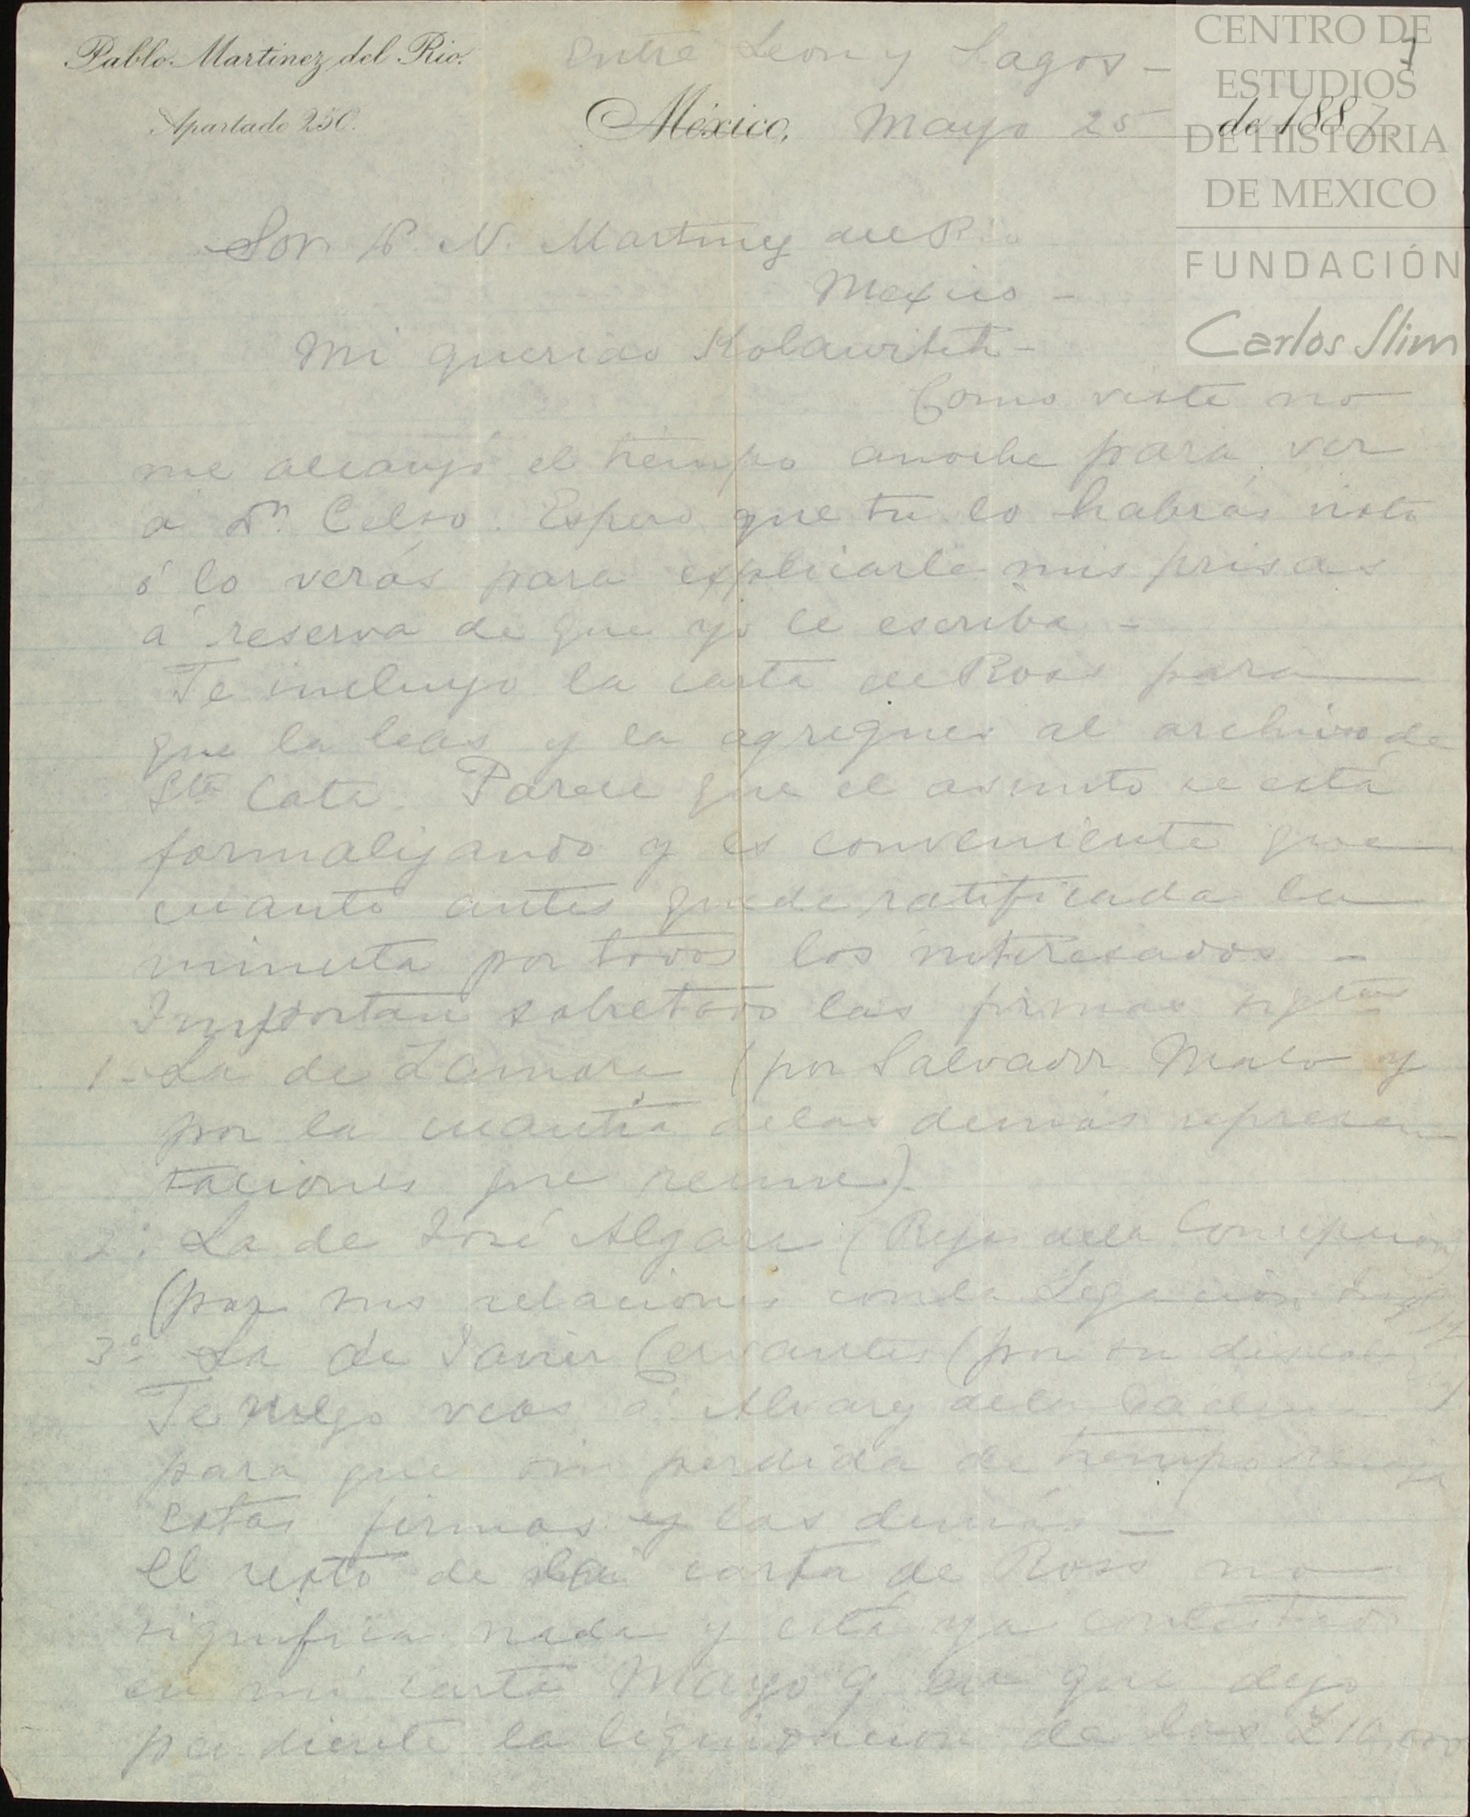 Pablo Martinez del Rio.
Apartado 250.
Entre Leon y Lagos -
México, Mayo 25 de 1887
CENTRO DE
ESTUDIOS
DE HISTORIA
DE MEXICO
FUNDACIÓN
Carlos Slim
Sor. D. N. Martinez del Rio
Mexico -
Mi querido
Como viste no
me alcanzó el tiempo anoche para ver
a Dn. Celso. Espero que tu lo habrás visto
ó lo verás para explicarle mis prisas
a reserva de que yo le escriba -
Te incluyo la carta de Ross para
que la leas y la agregues al archivo de
Sta Cata. Parece que el asunto se está
formalizando y es conveniente que
cuanto antes quede ratificada la
minuta por todos los interesados -
Importan sobretodo las firmas sigtes
1- La de Zamora (por Salvador Malo y
por la cuantia de las demás represen
taciones que reune)
2a La de José Algara (Reja de la Concepcion)
(por sus relaciones con la Legacion
3a La de Javier Cervantes (por su
Te ruego veas á Alvarez de la Cadena
para que sin perdida de tiempo recoja
estas firmas y las demás -
El resto de la carta de Ross no
significa nada y está ya contestado
en mi carta Mayo 9 en que dejo
pendiente la liquidacion de las £10,000